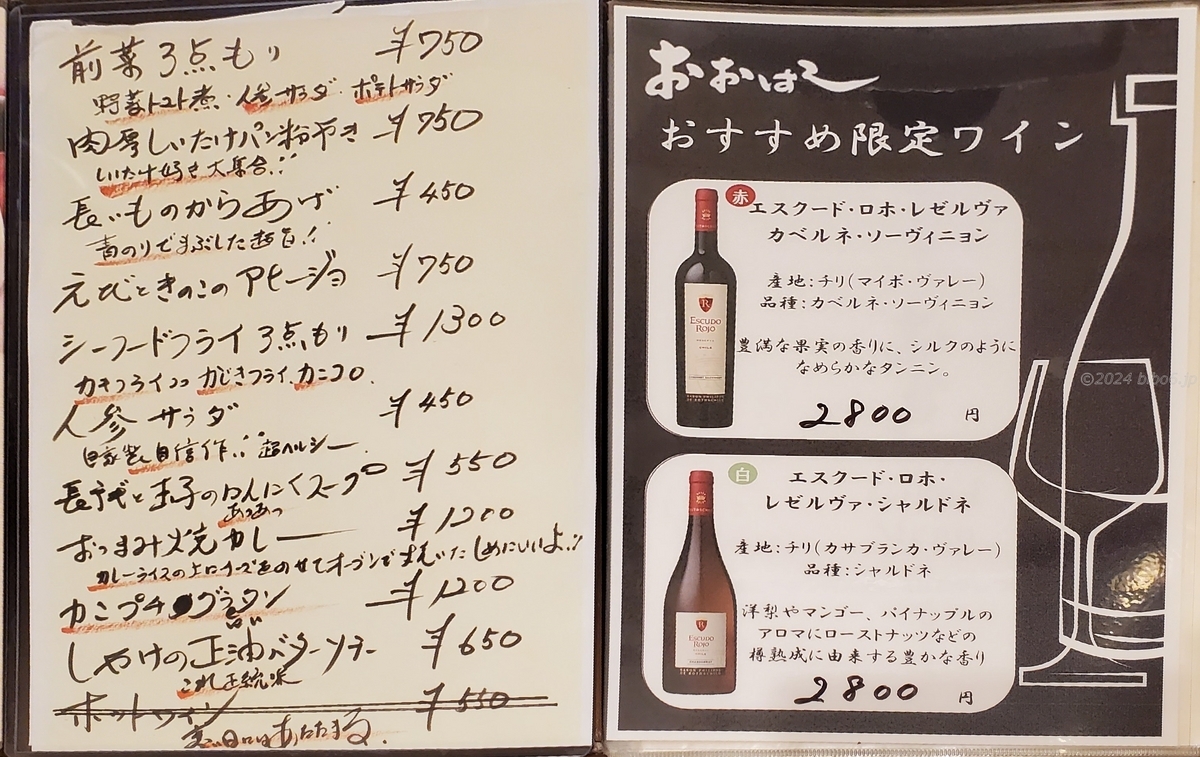 前菜3点もり ¥750
野菜トマト煮・人参サラダ・ポテトサラダ
肉厚しいたけパン粉やき ¥750
しいたけ好き大集合!!
長いものからあげ ¥450
青のりでまぶした超旨!!
えびときのこのアヒージョ ¥750
シーフードフライ3点もり ¥1300
カキフライ2コ カジキフライ、カニコロ
人参サラダ ¥450
自家製自信作!! 超ヘルシー
長ネギと玉子のにんにくスープ ¥550
あつあつ
おつまみ焼カレー ¥1200
カレーライスの上にチーズをのせてオーブンで焼いた しめにいいよ!!
カニプチグラタン ¥1200
しゃけの正油バターソテー ¥650
これ正統派
ホットワイン ¥550
寒い日にはあたたまる
おおはし
おすすめ限定ワイン
赤
エスクード・ロホ・レゼルヴァ
カベルネ・ソーヴィニョン
産地:チリ(マイポ・ヴァレー)
品種:カベルネ・ソーヴィニョン
豊満な果実の香りに、シルクのように
なめらかなタンニン。
2800 円
R
ESCUDO
ROJO
白
エスクード・ロホ・
レゼルヴァ・シャルドネ
産地:チリ(カサブランカ・ヴァレー)
品種:シャルドネ
洋梨やマンゴー、パイナップルの
アロマにローストナッツなどの
樽熟成に由来する豊かな香り
2800 円
ESCUDO
ROJO
©2024 bibo6.jp